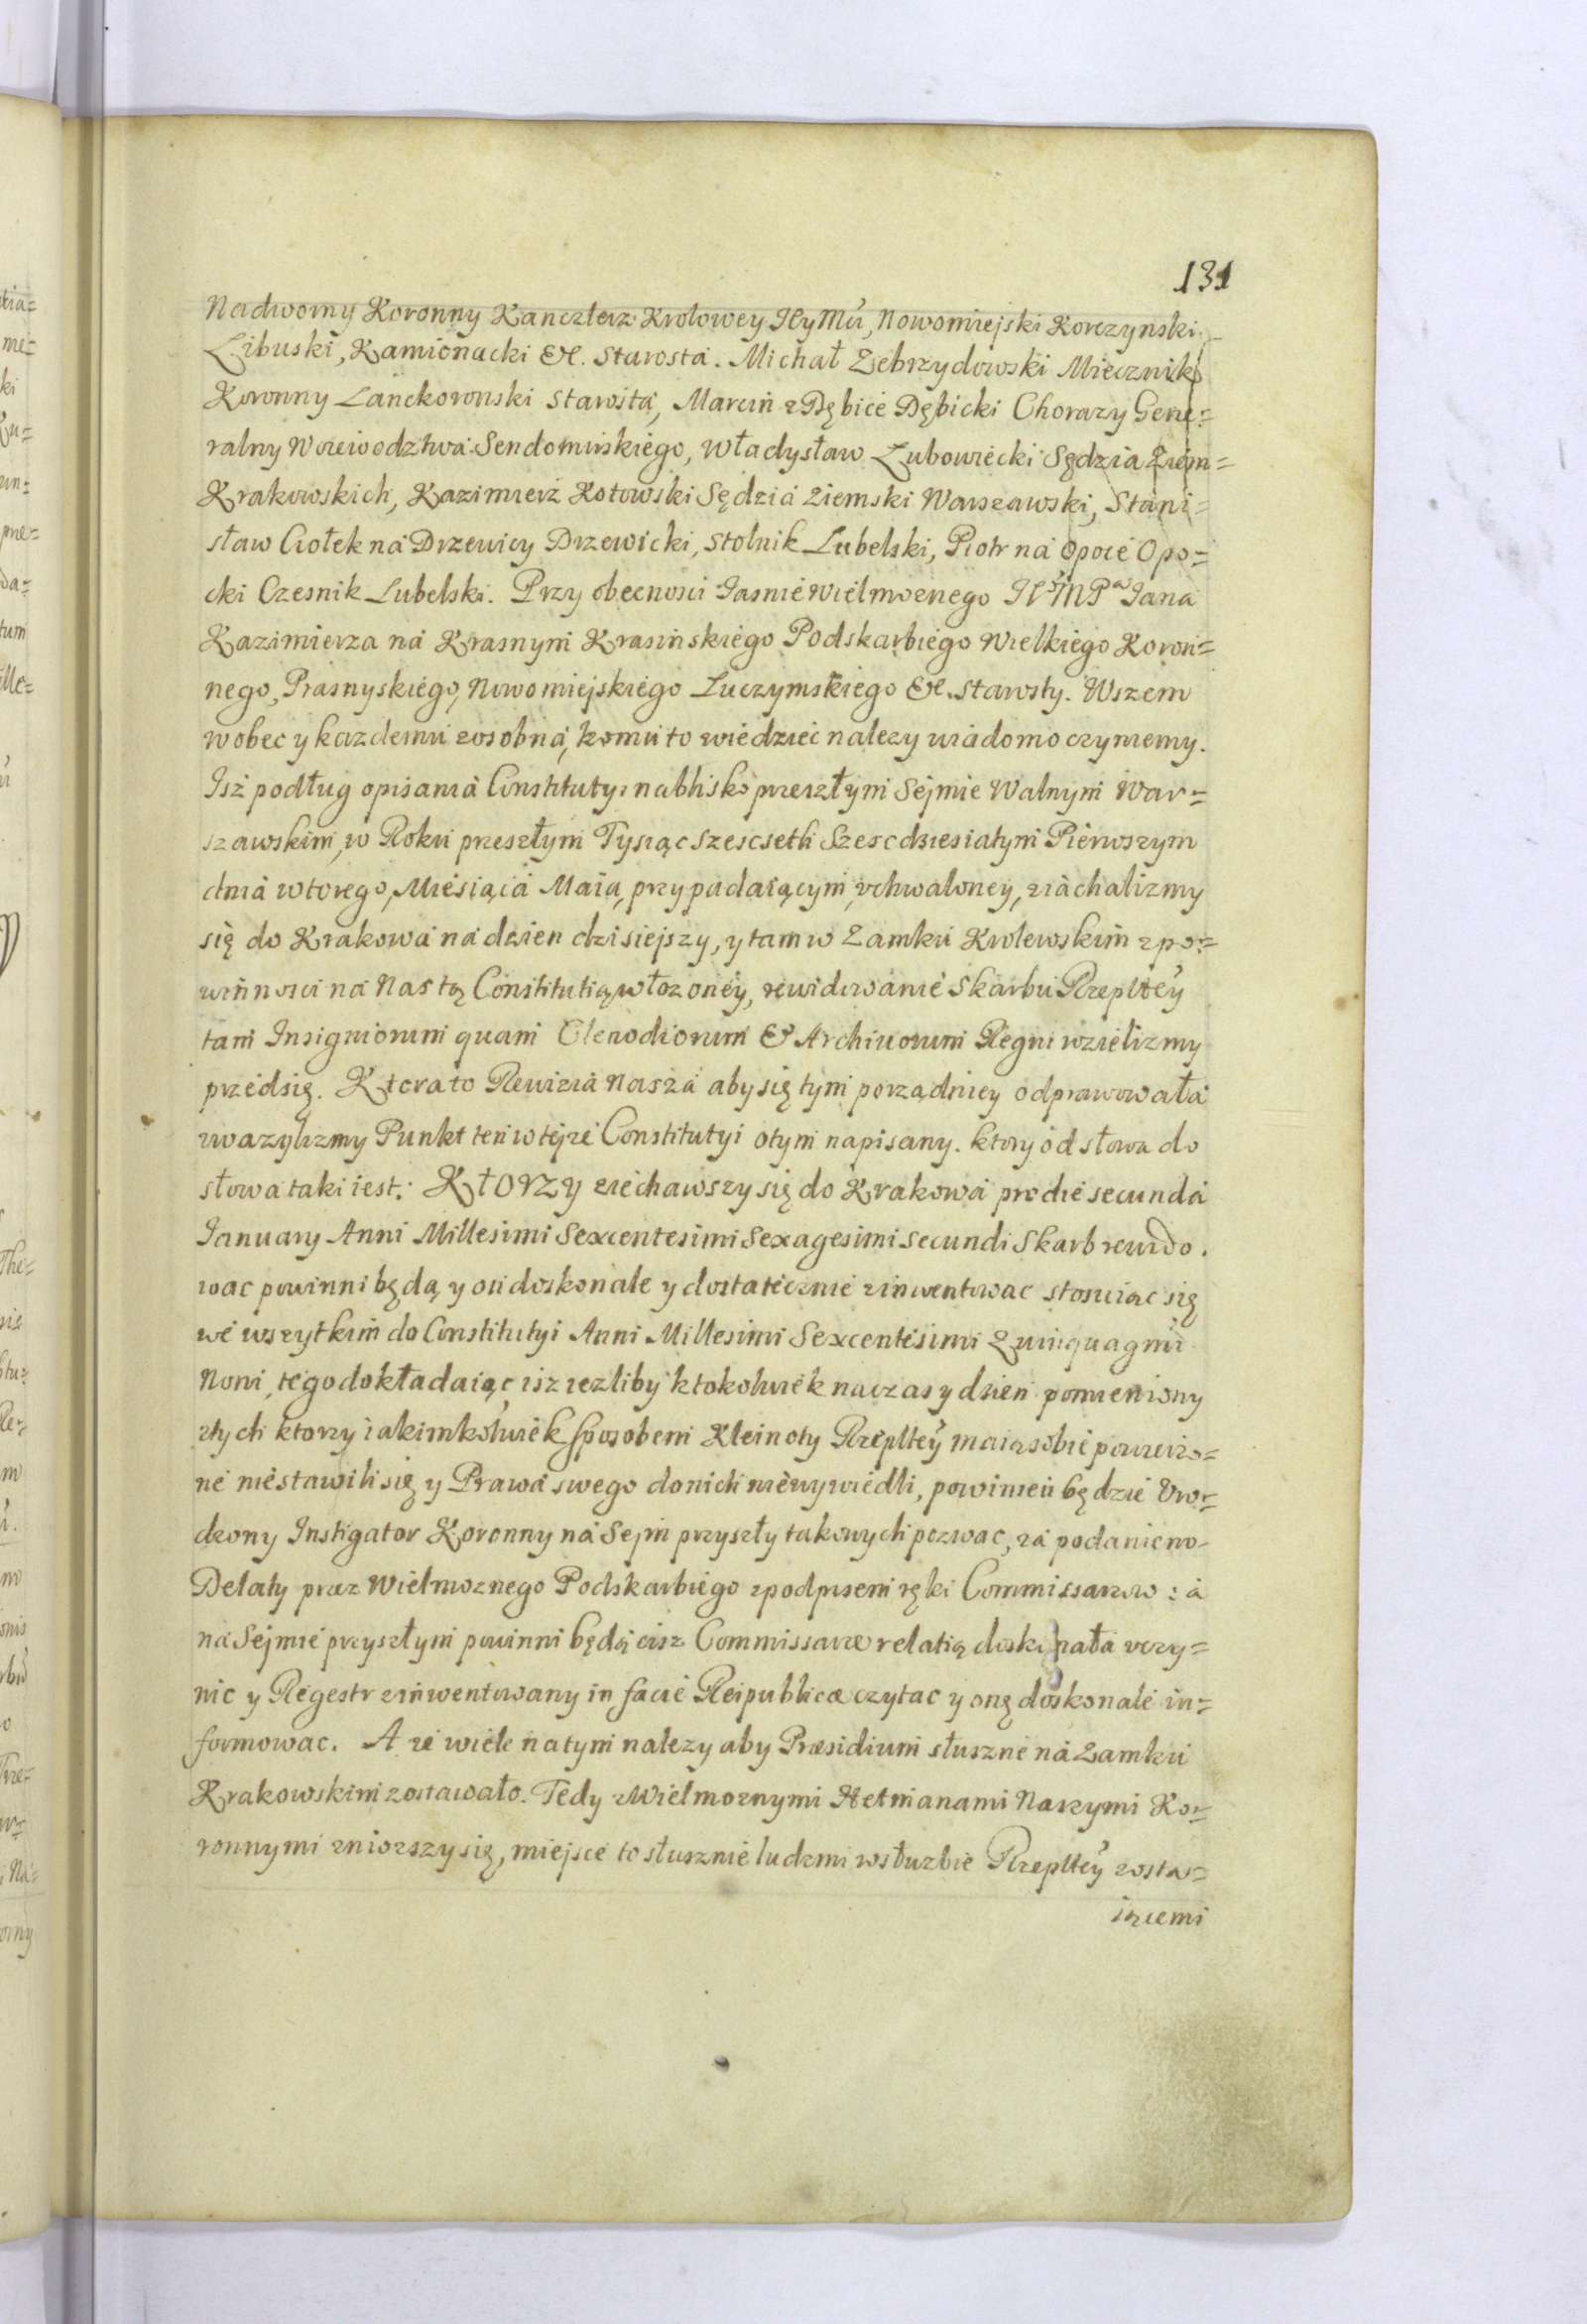 131
Nadworny Koronny Kanczlerz Krolowey JeyMći, Nowomiejski Korczynski
Libuski, Kamionacki &c. Starosta. Michał Zebrzydowski Miecznik
Koronny Lanckoronski Starosta, Marcin z Dębice Dębicki Chorazy Gene=
ralny Woiewodztwa Sendomirskiego, Władysław Lubowiecki Sędzia Ziem=
Krakowskich, Kazimierz Kotowski Sędzia Ziemski Warszawski, Stani=
sław Ciołek na Drzewicy Drzewicki, Stolnik Lubelski, Piotr na Opocé Opo=
cki Czesnik Lubelski. Przy obecnosci Jasnie Wielmoznego Jana
Kazimierza na Krasnym Krasinskiego Podskarbiego Wielkiego Koron=
nego, Prasnyskiego, Nowomiejskiego Luczymskiego &c. Starosty. Wszem
wobec y kazdemu zosobna, komu to wiedziec nalezy wiadomo czyniemy.
Isz podług opisania Constitutyi na blisko przeszłym Sejmie Walnym War=
szawskim, w Roku przeszłym Tysiąc szescsetli Szescdziesiatym Pierwszym
dnia wtorego, Miesiąca Maia, przypadaiącym, vchwaloney, ziachalizmy
się do Krakowa na dzien dzisiejszy, y tam w Zamku Krolewskim z po=
winnosci na Nas tą Constitutią włozoney, rewidowanie Skarbu Rzepltey
tam Insigniorum quam Clenodiorum & Archiuorum Regni wzielizmy
przedsię. Ktora to Rewizia Nasza aby się tym porządniey odprawowała
uwazylizmy Punkt ten w tejze Constitutyi o tym napisany. ktory od słowa do
słowa taki iest: Ktorzy ziechawszy się do Krakowa pro die secunda
January Anni Millesimi Sexcentesimi Sexagesimi Secundi Skarb rewido.
wac powinni będą y on doskonale y dostatecznie zinwentowac stosuiąc się
we wszytkim do Constitutyi Anni Millesimi Sexcentesimi Quinquagmi
Noni, tego dokładaiąc isz iezliby ktokolwiek na czas y dzien pomieniony
z tych ktorzy iakimkolwiek sposobem Kleinoty Rzepltey maią sobie powierzo=
ne nie stawili się y Prawa swego do nich nie wywiedli, powinien będzie Vro=
dzony Instigator Koronny na Sejm przyszły takowych pozwac, za podaniem
Delaty przez Wielmoznego Podskarbiego z podpisem ręki Commissarzow: a
na Sejmie przyszłym powinni będą cisz Commissarze relatią doskonała vczy=
nic y Regestr zinwentowany in facie Reipublicæ czytac y onę doskonale in=
formowac. A ze wiele na tym nalezy aby Præsidium słuszne na Zamku
Krakowskim zostawało. Tedy z Wielmoznymi Hetmanami Naszymi Ko=
ronnymi zniozszy się, miejsce to słusznie ludzmi w słuzbie Rzepltey zosta=
iącemi